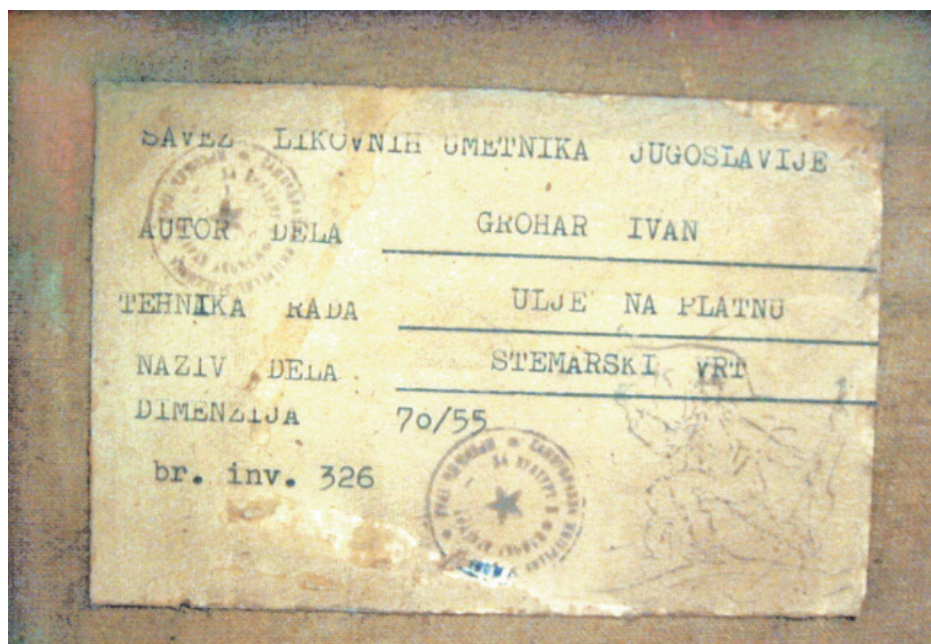 SAVEZ LIKOVNIH UMETNIKA JUGOSLAVIJE
AUTOR DELA GROHAR IVAN
TEHNIKA RADA ULJE NA PLATNU
NAZIV DELA STEMARSKI VRT
DIMENZIJA 70/55
br. inv. 326